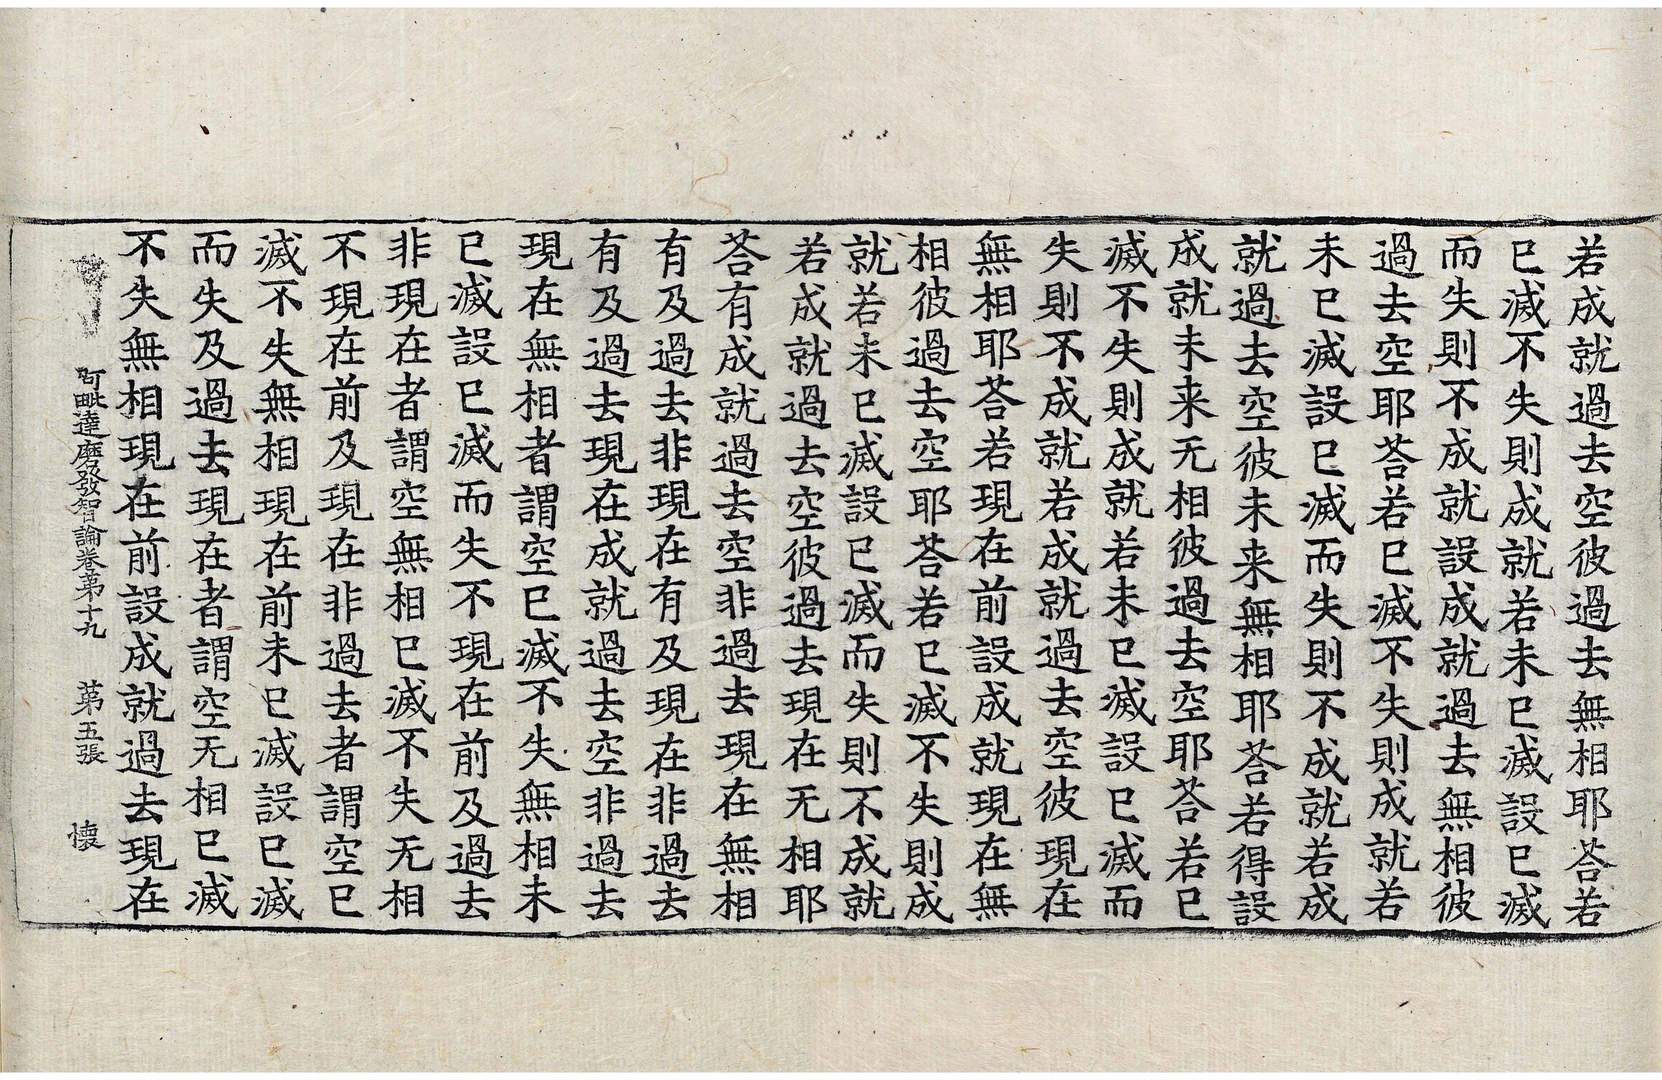 若成就過去空彼過去無相耶荅若
已滅不失則成就若未已滅設已滅
而失則不成就設成就過去無相彼
過去空耶荅若已滅不失則成就若
未已滅設已滅而失則不成就若成
就過去空彼未来無相耶荅若得設
成就未来无相彼過去空耶荅若已
滅不失則成就若未已滅設已滅而
失則不成就若成就過去空彼現在
無相耶荅若現在前設成就現在無
相彼過去空耶荅若已滅不失則成
就若未已滅設已滅而失則不成就
若成就過去空彼過去現在无相耶
荅有成就過去空非過去現在無相
有及過去非現在有及現在非過去
有及過去現在成就過去空非過去
現在無相者謂空已滅不失無相未
已滅設已滅而失不現在前及過去
非現在者謂空無相已滅不失无相
不現在前及現在非過去者謂空已
滅不失無相現在前未已滅設已滅
而失及過去現在者謂空无相已滅
不失無相現在前設成就過去現在
阿毗達磨發智論卷第十九 第五張 懷